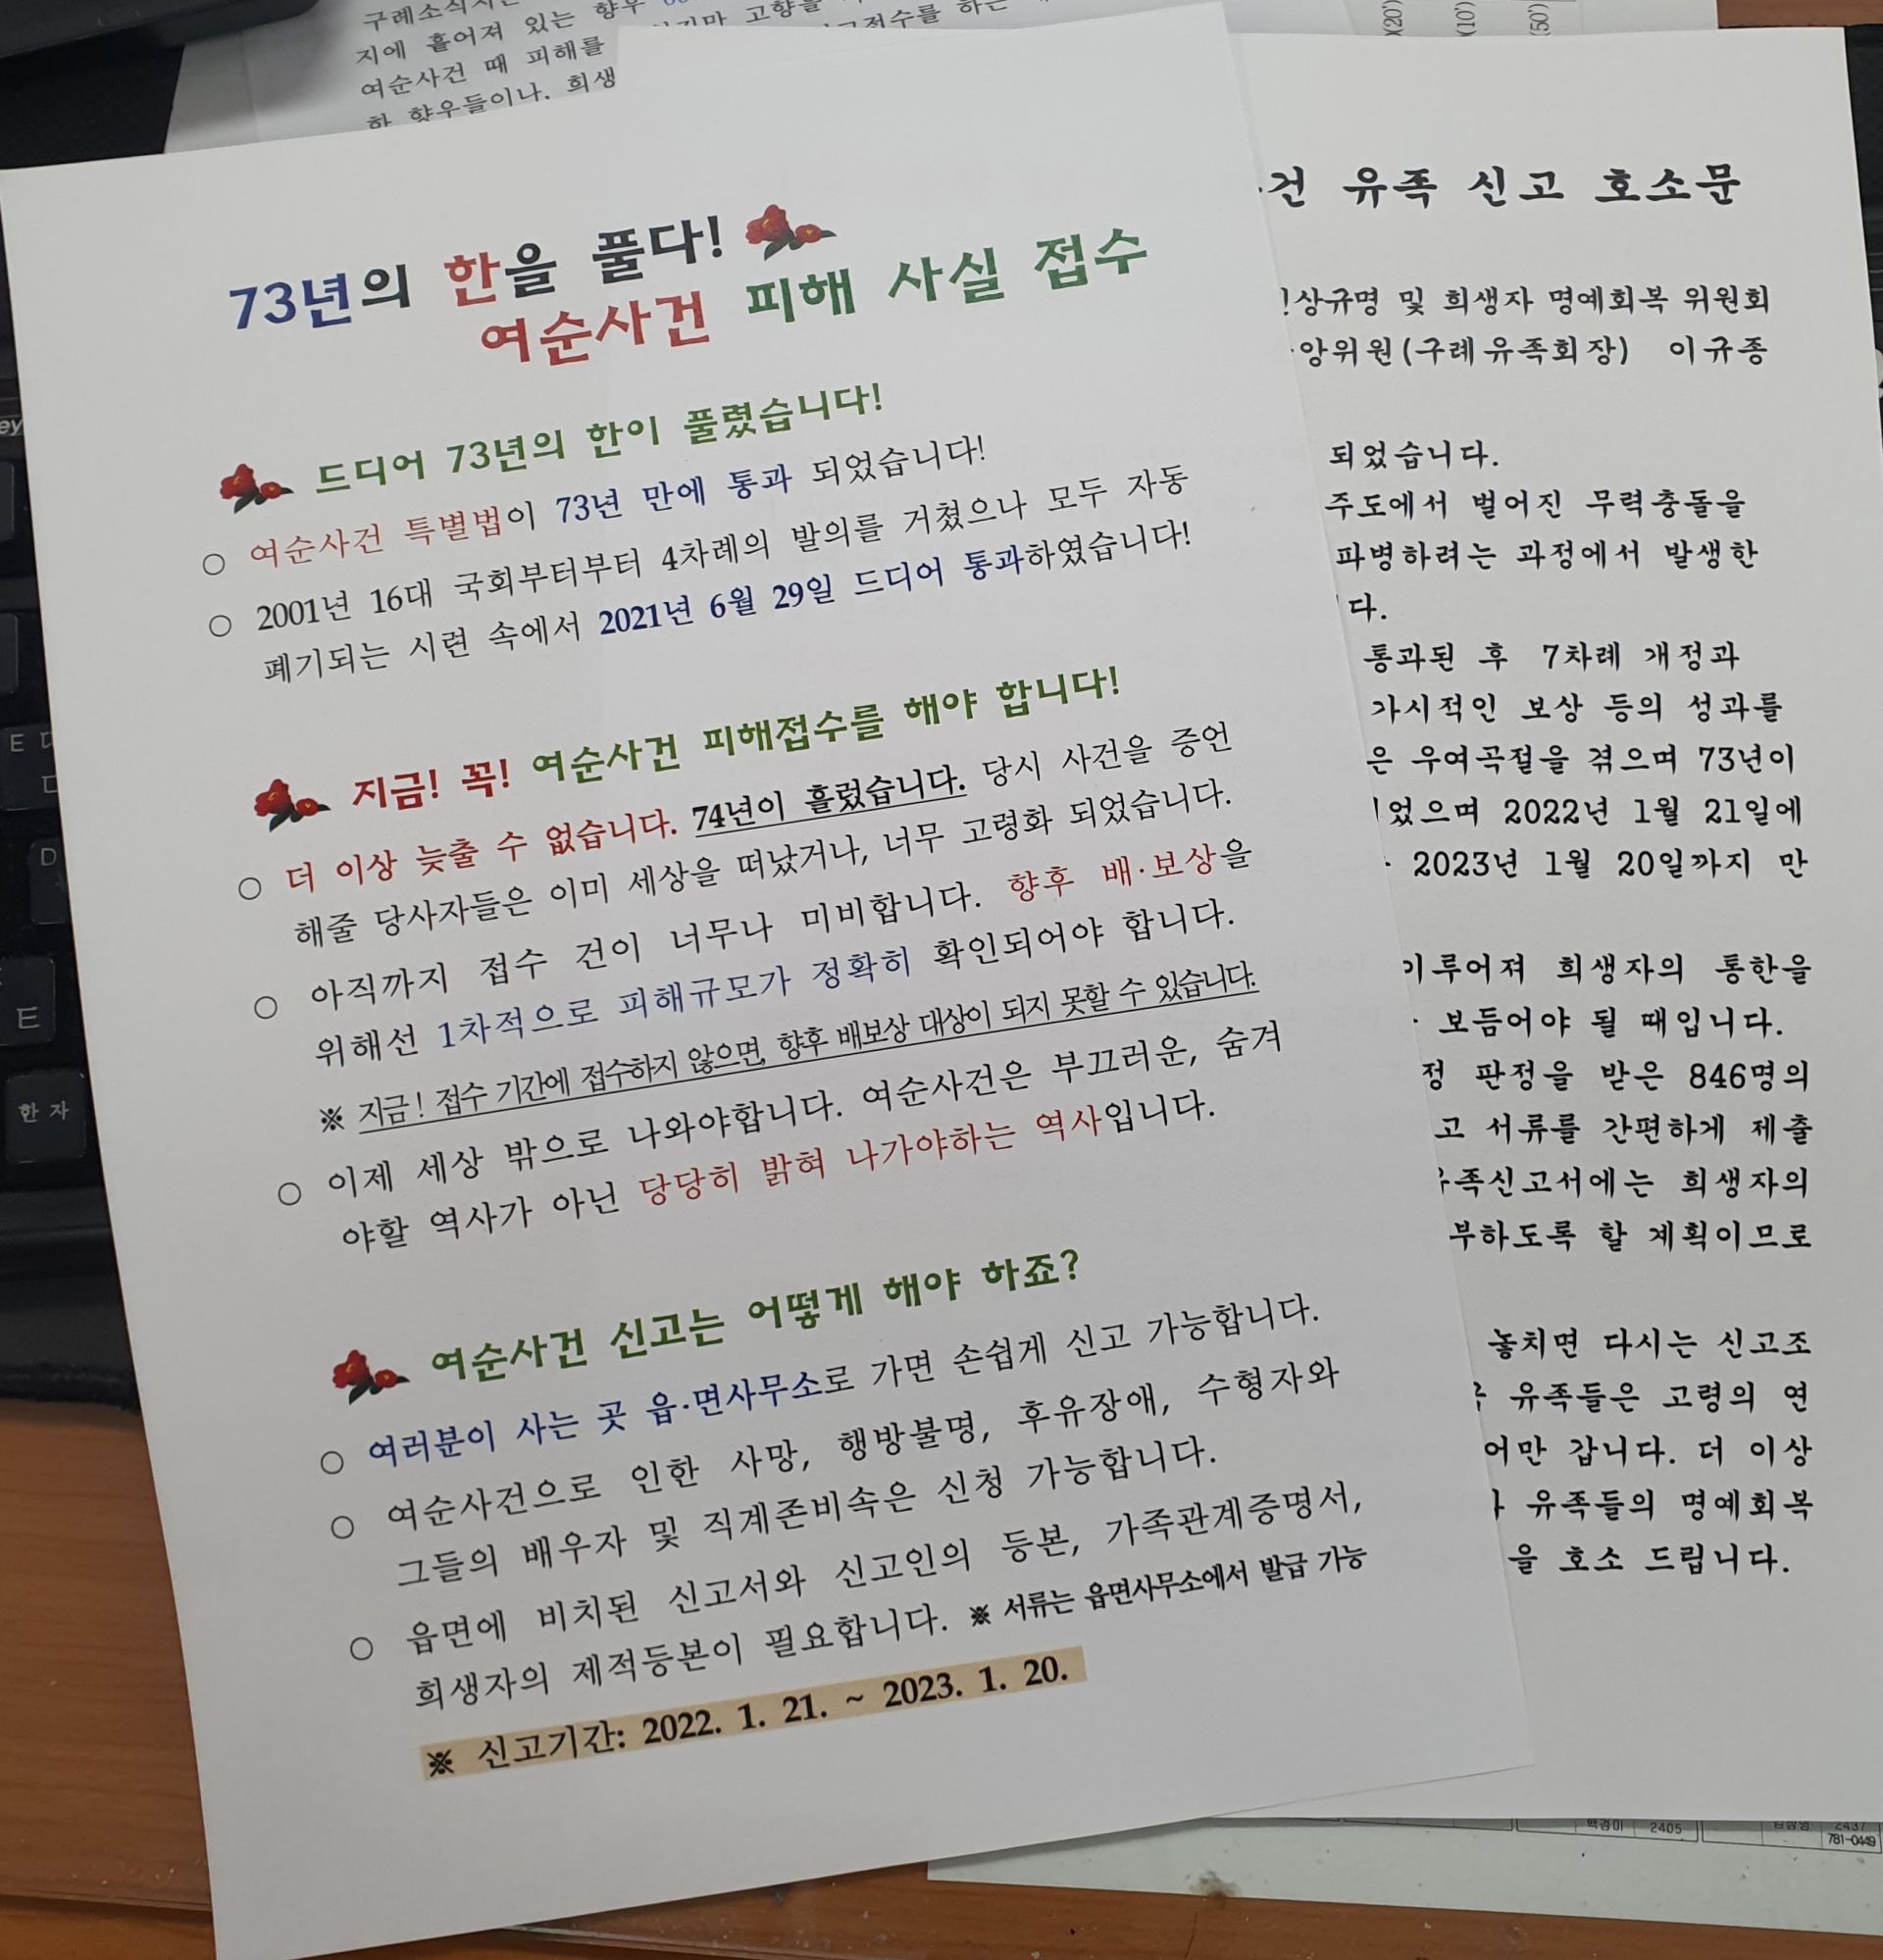 구례소식지는
지에 흩어져 있는 향우
여순사건 때 피해를
한 향우들이나. 희생
고향을
(20)
(10)
(50)
73년의 한을 풀다!
여순사건 피해 사실 접수
드디어 73년의 한이 풀렸습니다!
○ 여순사건 특별법이 73년 만에 통과 되었습니다!
○ 2001년 16대 국회부터부터 4차례의 발의를 거쳤으나 모두 자동
폐기되는 시련 속에서 2021년 6월 29일 드디어 통과하였습니다!
지금! 꼭! 여순사건 피해접수를 해야 합니다!
○ 더 이상 늦출 수 없습니다. 74년이 흘렀습니다. 당시 사건을 증언
해줄 당사자들은 이미 세상을 떠났거나, 너무 고령화 되었습니다.
○ 아직까지 접수 건이 너무나 미비합니다. 향후 배·보상을
위해선 1차적으로 피해규모가 정확히 확인되어야 합니다.
※ 지금! 접수 기간에 접수하지 않으면, 향후 배보상 대상이 되지 못할 수 있습니다.
○ 이제 세상 밖으로 나와야합니다. 여순사건은 부끄러운, 숨겨
야할 역사가 아닌 당당히 밝혀 나가야하는 역사입니다.
여순사건 신고는 어떻게 해야 하죠?
○ 여러분이 사는 곳 읍·면사무소로 가면 손쉽게 신고 가능합니다.
○ 여순사건으로 인한 사망, 행방불명, 후유장애, 수형자와
그들의 배우자 및 직계존비속은 신청 가능합니다.
○ 읍면에 비치된 신고서와 신고인의 등본, 가족관계증명서,
희생자의 제적등본이 필요합니다. ※ 서류는 읍면사무소에서 발급 가능
※ 신고기간: 2022. 1. 21. ~ 2023. 1. 20.
건 유족 신고 호소문
상규명 및 희생자 명예회복 위원회
앙위원(구례유족회장) 이규종
되었습니다.
주도에서 벌어진 무력충돌을
파병하려는 과정에서 발생한
다.
통과된 후 7차례 개정과
가시적인 보상 등의 성과를
은 우여곡절을 겪으며 73년이
었으며 2022년 1월 21일에
2023년 1월 20일까지 만
이루어져 희생자의 통한을
보듬어야 될 때입니다.
정 판정을 받은 846명의
고 서류를 간편하게 제출
족신고서에는 희생자의
부하도록 할 계획이므로
놓치면 다시는 신고조
유족들은 고령의 연
어만 갑니다. 더 이상
유족들의 명예회복
을 호소 드립니다.
2405
2437
781-0449
E
D
E
ㅌ
한자